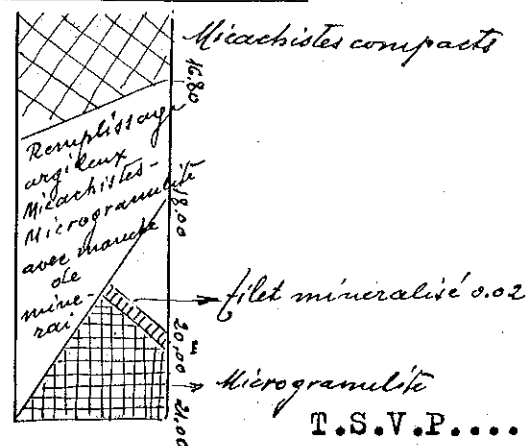 Micachistes compacts
16.80
Remplissage
argileux
Micachistes-
Microgranulite
avec mouche
de
mine-
rai
18.00
filet minéralisé 0.02
20.00 m
Microgranulite
21.00
T.S.V.P....